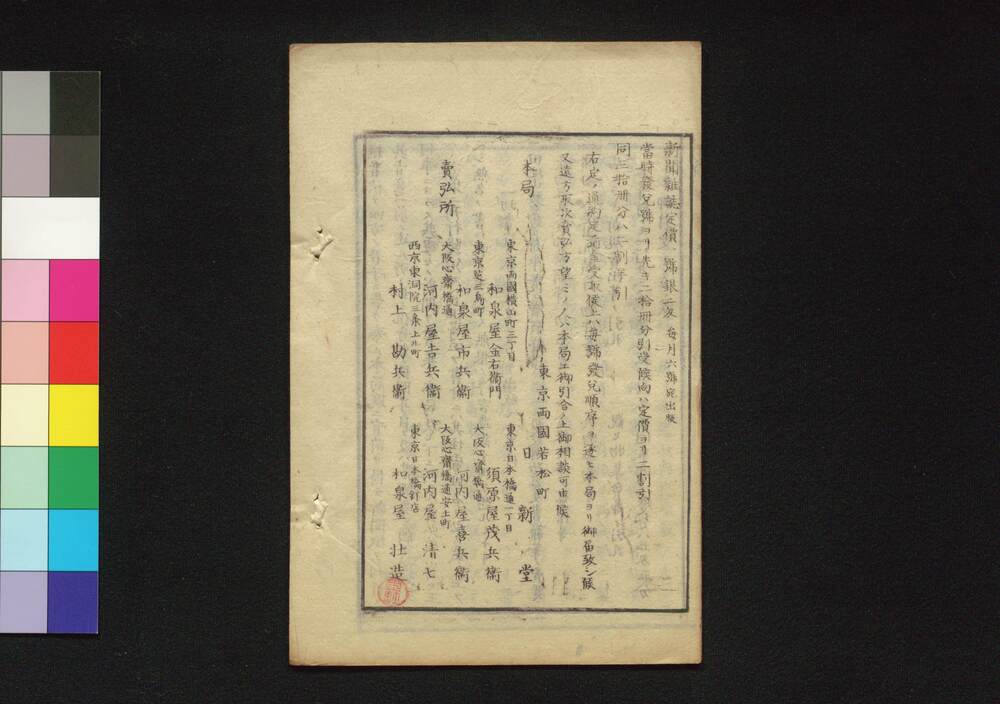 新聞雜誌定價一號銀二匁 每月六號宛出版
當時發兌號ヨリ先キ二拾冊分引受候向ハ定價ヨリ二割引
同三拾冊分ハ三割引
右定ノ通約定
受取候上ハ每號發兌順序ヲ逐ヒ本局ヨリ御届致シ候
又遠方取次賣弘方望ミノ人ハ本局エ御引合ノ上御相談可申候
本局
東京兩國若松町
日新堂
賣弘所
東京兩國橫山町三丁目
和泉屋金右衞門
東京日本橋通一丁目
須原屋茂兵衞
東京芝三島町
和泉屋市兵衞
大阪心齋橋通
河内屋喜兵衞
大阪心齋橋通
河内屋吉兵衞
大阪心齋橋通安土町
河内屋清七
西京東洞院三條上ル町
村上勘兵衞
東京日本橋釘店
和泉屋壯造